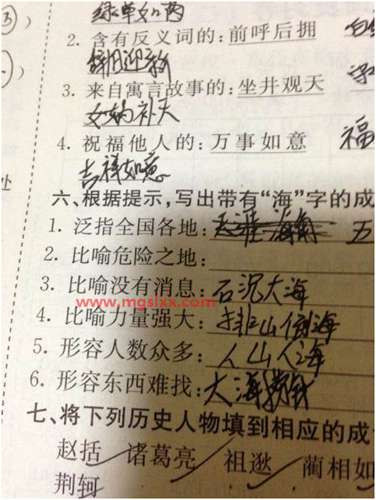 2. 含有反义词的：前呼后拥
辞旧迎新
3. 来自寓言故事的：坐井观天
女娲补天
4. 祝福他人的：万事如意 福
吉祥如意
六、根据提示，写出带有“海”字的成
1. 泛指全国各地：天涯海角 五
2. 比喻危险之地：
3. 比喻没有消息：石沉大海
www.mgslxx.com
4. 比喻力量强大：排山倒海
5. 形容人数众多：人山人海
6. 形容东西难找：大海捞针
七、将下列历史人物填到相应的成
赵括 诸葛亮 祖逖 蔺相如
荆轲